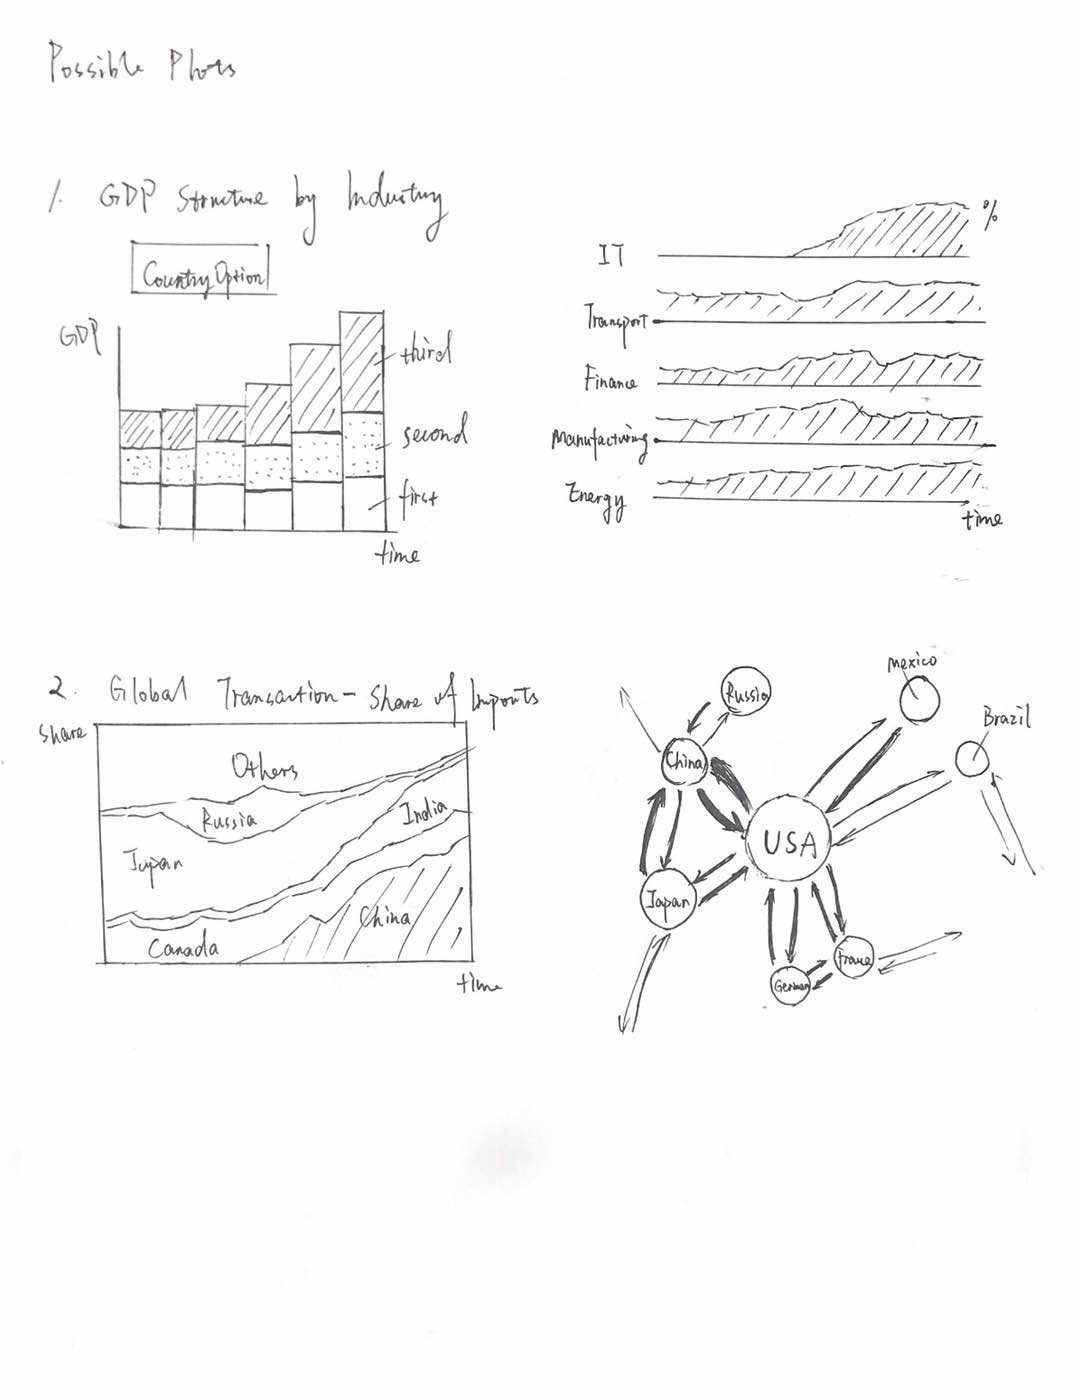 Possible Plots
1. GDP Structure by Industry
Country Option
GDP
third
second
first
time
%
IT
Transport
Finance
Manufacturing
Energy
time
2. Global Transaction - Share of Imports
Share
Others
Russia
India
Japan
China
Canada
time
Mexico
Russia
Brazil
China
USA
Japan
France
German